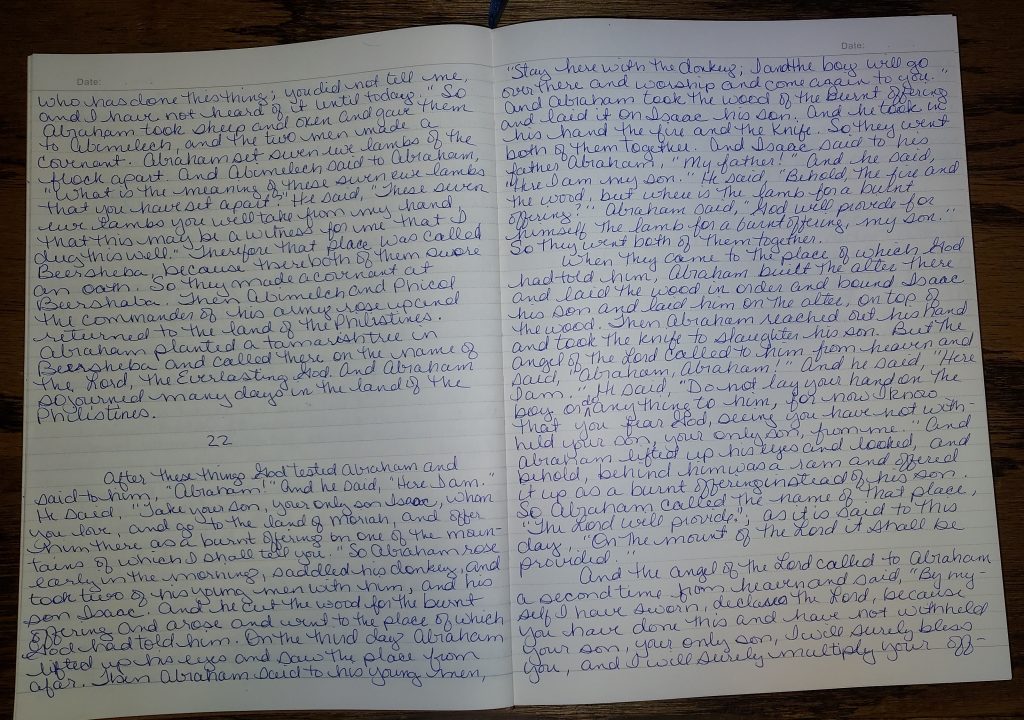 Date:
who has done this thing; you did not tell me,
and I have not heard of it until today." So
Abraham took sheep and oxen and gave them
to Abimelech, and the two men made a
covenant. Abraham set seven ewe lambs of the
flock apart. And Abimelech said to Abraham,
"What is the meaning of these seven ewe lambs
that you have set apart?" He said, "These seven
ewe lambs you will take from my hand,
that this may be a witness for me that I
dug this well." Therefore that place was called
Beersheba, because there both of them swore
an oath. So they made a covenant at
Beershaba. Then Abimelech and Phicol
the commander of his army rose up and
returned to the land of the Philistines.
Abraham planted a tamarish tree in
Beersheba and called there on the name of
the Lord, the Everlasting God. And Abraham
sojourned many days in the land of the
Philistines.
22
After these things God tested Abraham and
said to him, "Abraham!" And he said, "Here I am."
He said, "Take your son, your only son Isaac, whom
you love, and go to the land of Moriah, and offer
him there as a burnt offering on one of the moun-
tains of which I shall tell you." So Abraham rose
early in the morning, saddled his donkey, and
took two of his young men with him, and his
son Isaac. And he cut the wood for the burnt
offering and arose and went to the place of which
God had told him. On the third day Abraham
lifted up his eyes and saw the place from
afar. Then Abraham said to his young men,
Date:
"Stay here with the donkey; I and the boy will go
over there and worship and come again to you."
And Abraham took the wood of the burnt offering
and laid it on Isaac his son. And he took in
his hand the fire and the knife. So they went
both of them together. And Isaac said to his
father Abraham, "My father!" And he said,
"Here I am my son." He said, "Behold, the fire and
the wood, but where is the lamb for a burnt
offering?" Abraham said, "God will provide for
himself the lamb for a burnt offering, my son."
So they went both of them together.
When they came to the place of which God
had told him, Abraham built the alter there
and laid the wood in order and bound Isaac
his son and laid him on the alter, on top of
the wood. Then Abraham reached out his hand
and took the knife to slaughter his son. But the
angel of the Lord called to him from heaven and
said, "Abraham, Abraham!" And he said, "Here
I am." He said, "Do not lay your hand on the
boy or do anything to him, for now I know
that you fear God, seeing you have not with-
held your son, your only son, from me." And
Abraham lifted up his eyes and looked, and
behold, behind him was a ram and offered
it up as a burnt offering instead of his son.
So Abraham called the name of that place,
"The Lord will provide"; as it is said to this
day, "On the mount of the Lord it shall be
provided."
And the angel of the Lord called to Abraham
a second time from heaven and said, "By my-
self I have sworn, declares the Lord, because
you have done this and have not withheld
your son, your only son, I will surely bless
you, and I will surely multiply your off-